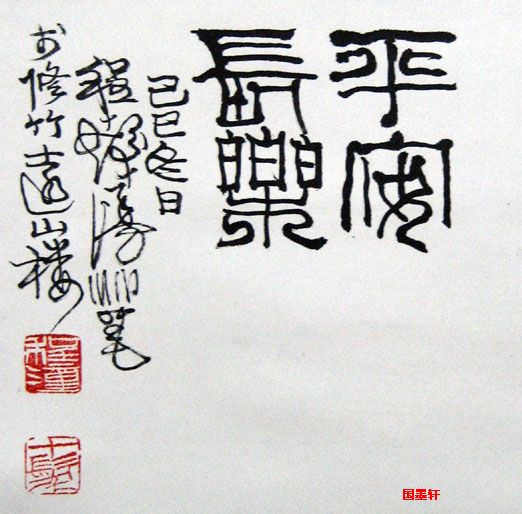 平安
長樂
己巳冬日
程十髮
筆
於修竹遠山樓
十髮
国墨轩